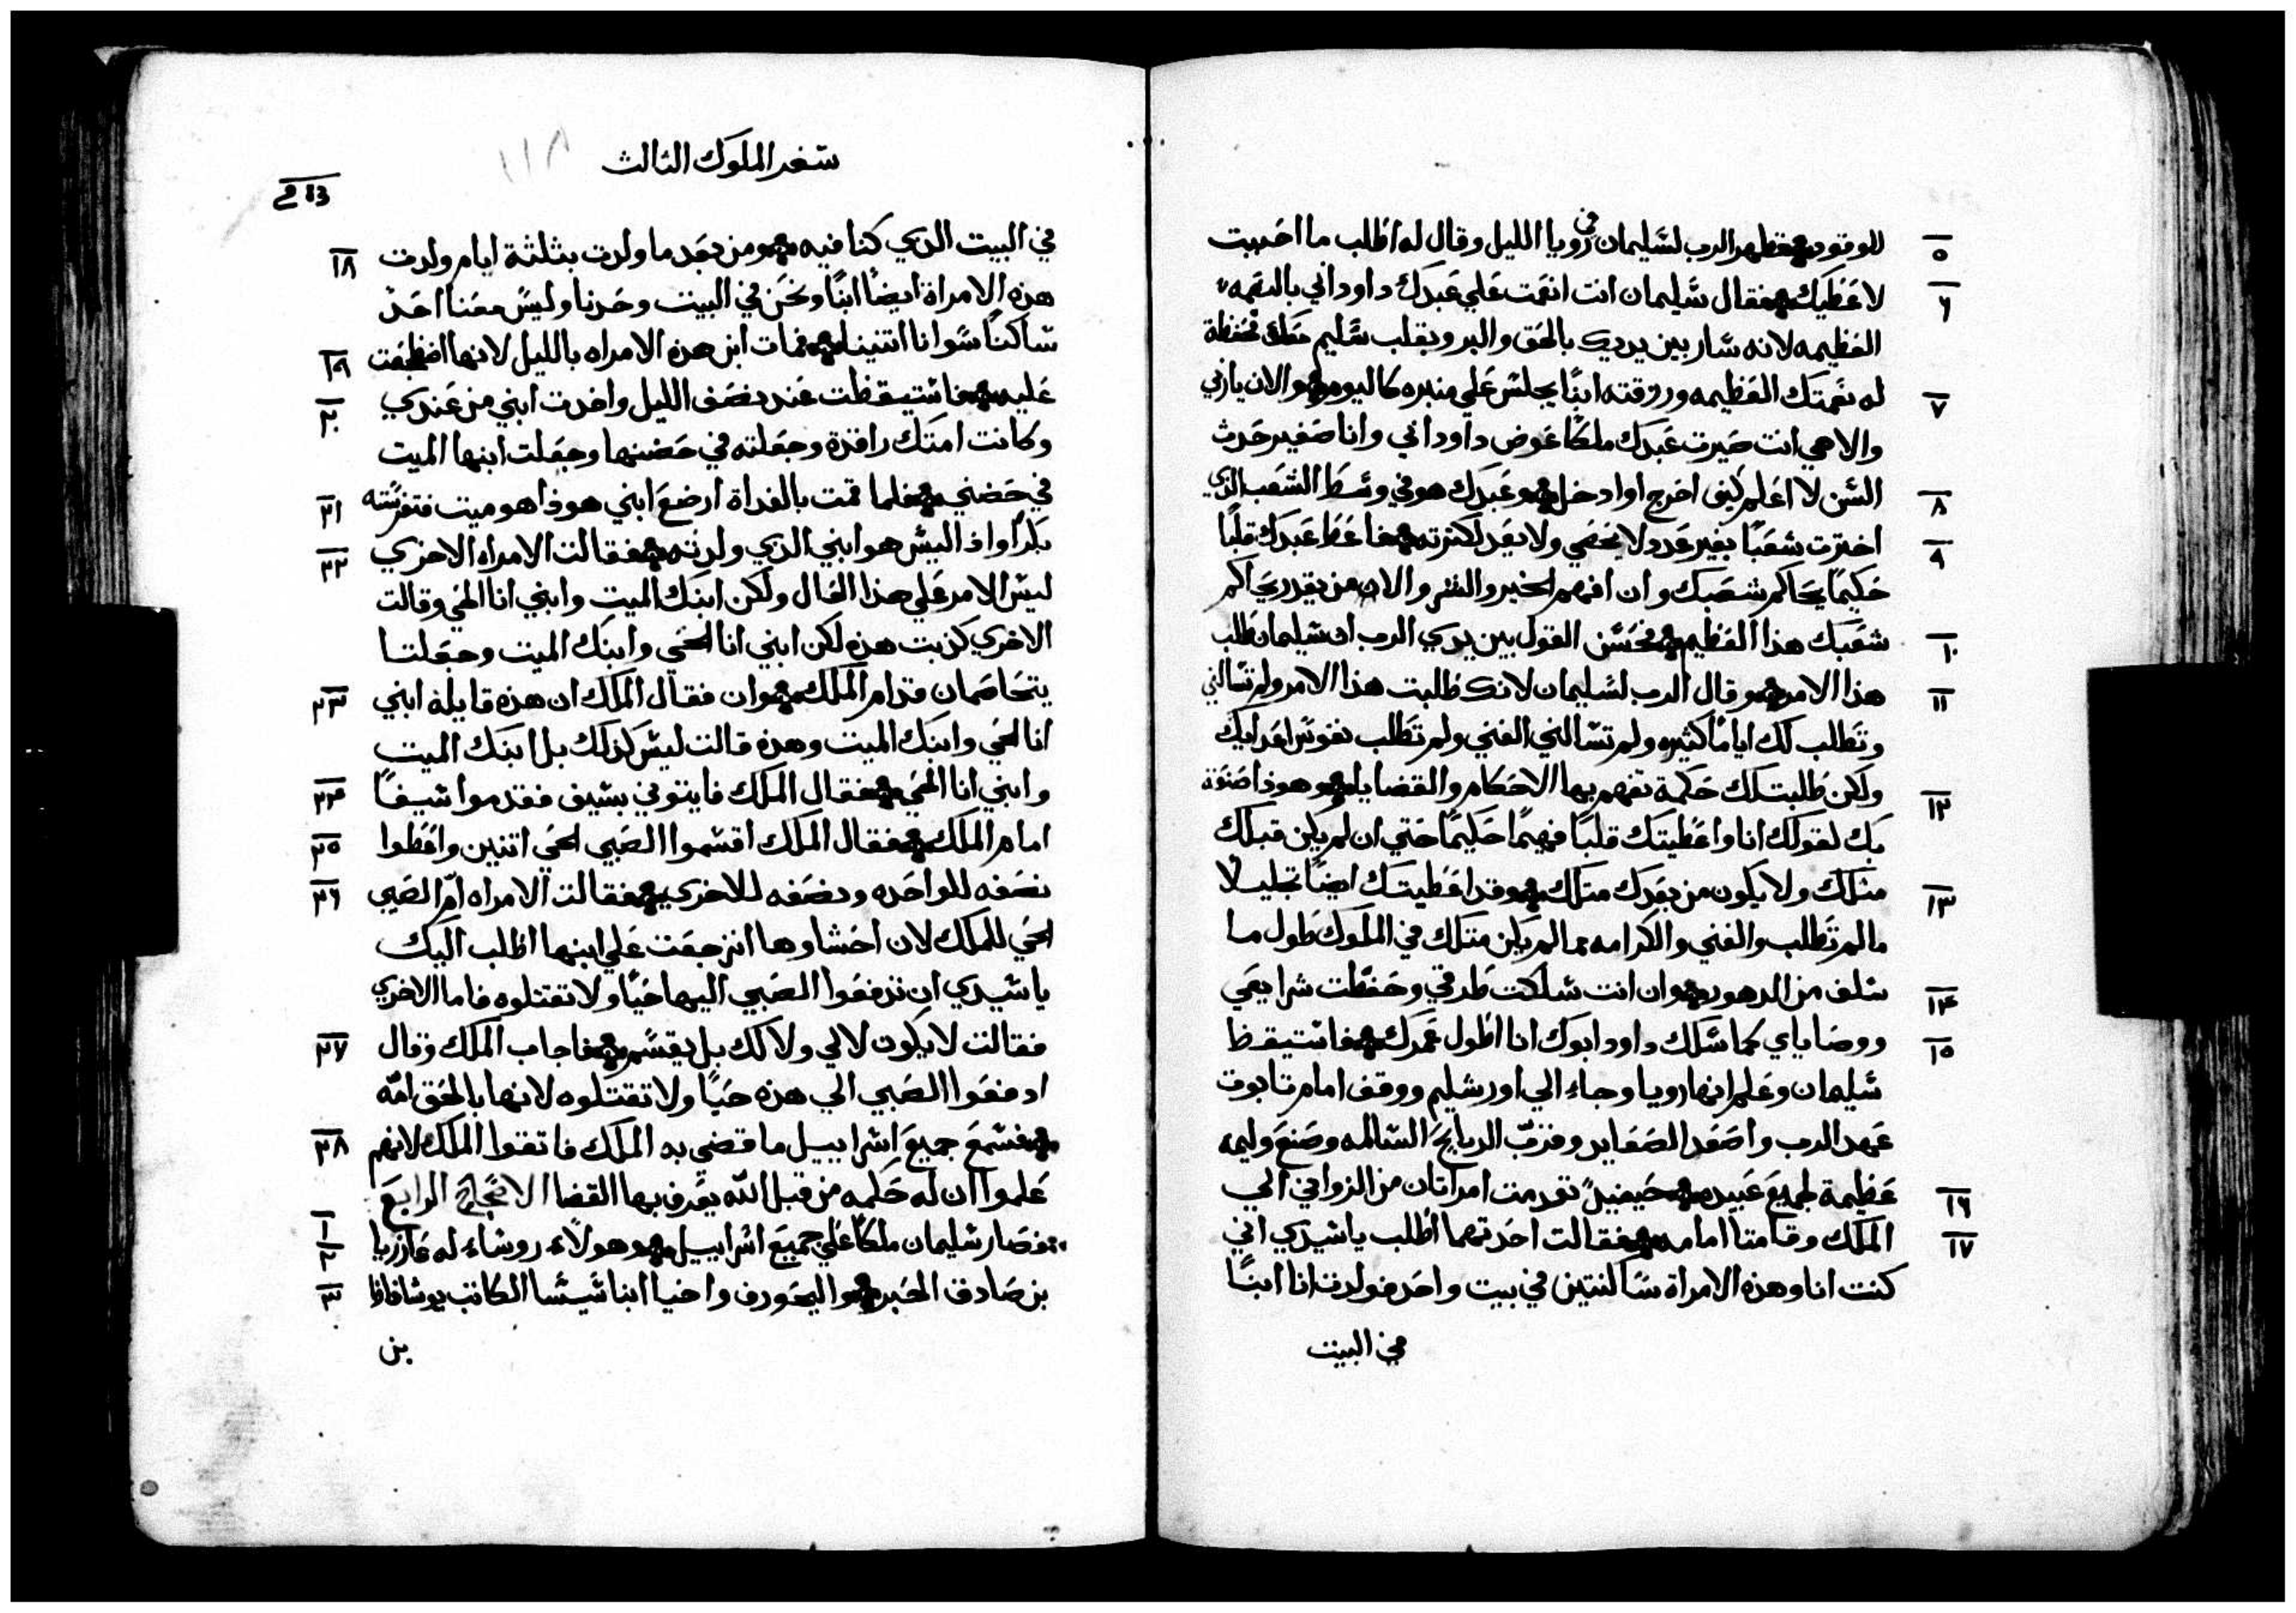 للوقود فظهر الرب لسليمان في رويا الليل وقال له اطلب ما احببت
٥
لاعطيك فقال سليمان انت انعمت علي عبدك داود ابي بالنعمه
٦
العظيمه لانه سار بين يديك بالحق والبر وبقلب سليم معك فحفظة
له نعمتك العظيمه ورزقته ابنًا يجلس علي منبره كاليوم والان ياربي
٧
والاهي انت صيرت عبدك ملكًا عوض داود ابي وانا صغير حدث
السن لا اعلم كيف اخرج او ادخل وعبدك هو في وسط الشعب الذي
٨
اخترت شعبًا بغير عدد لا يحصي ولا يعد لكثرته فاعط عبدك قلبًا
٩
حكيمًا يحاكم شعبك وان افهم الخير والشر والان من يقدر يحاكم
شعبك هذا العظيم فحسن القول بين يدي الرب ان سليمان طلب
١٠
هذا الامر وقال الرب لسليمان لانك طلبت هذا الامر ولم تسالني
١١
وتطلب لك ايامًا كثيره ولم تسالني الغني ولم تطلب نفوس اعدايك
ولكن طلبت لك حكمة تفهم بها الاحكام والقضايا وهوذا صنعة
١٢
بك لقولك انا واعطيتك قلبًا فهيمًا حكيمًا حتي ان لم يكن قبلك
مثلك ولا يكون من بعدك مثلك وقد اعطيتك ايضًا تجليلا
١٣
ما لم تطلب والغني والكرامه مما لم يكن مثلك في الملوك طول ما
سلف من الدهور وان انت سلكت طرقي وحفظت شرايعي
١٤
ووصاياي كما سلك داود ابوك انا اطول عمرك فاستيقظ
١٥
سليمان وعلم انها رويا وجاء الي اورشليم ووقف امام تابوت
عهد الرب واصعد الصعايد وقرب الدبايح السالمه وصنع وليمه
عظيمة لجميع عبيده حينيذ تقدمت امراتان من الزواني الي
١٦
الملك وقامتا امامه فقالت احدتهما اطلب ياسيدي اني
١٧
كنت انا وهذه الامراة ساكنتين في بيت واحد فولدت انا ابنًا
في البيت
سفر الملوك الثالث
١١٨
213
في البيت الذي كنا فيه ومن بعد ما ولدت بثلثة ايام ولدت
١٨
هذه الامراة ايضًا ابنًا ونحن في البيت وحدنا وليس معنا احد
ساكنًا سوانا اتنينا فمات ابن هذه الامراه بالليل لانها اضطجعت
١٩
عليه فاستيقظت عند نصف الليل واخدت ابني من عندي
٢٠
وكانت امتك راقدة وجعلته في حضنها وجعلت ابنها الميت
في حضني فلما قمت بالغداة ارضع ابني هوذا هو ميت فتفرسته
٢١
بكرًا واذ اليس هو ابني الذي ولدته فقالت الامراه الاخري
٢٢
ليس الامر علي هذا الحال ولكن ابنك الميت وابني انا الحي وقالت
الاخري كذبت هذه لكن ابني انا الحي وابنك الميت وجعلتا
يتخاصمان قدام الملك وان فقال الملك ان هذه قايلة ابني
٢٣
انا الحي وابنك الميت وهذه قالت ليس كذلك بل ابنك الميت
وابني انا الحي فقال الملك فايتوني بسيف فقدموا سيفًا
٢٤
امام الملك فقال الملك اقسموا الصبي الحي اتنين واعطوا
٢٥
نصفه للواحده ونصفه للاخري فقالت الامراه ام الصبي
٢٦
الحي للملك لان احشاوها انزجعت علي ابنها اطلب اليك
ياسيدي ان تدفعوا الصبي اليها حيًا ولا تقتلوه فاما الاخري
فقالت لا يكون لا لي ولا لك بل يقسم فاجاب الملك وقال
٢٧
ادفعوا الصبي الي هذه حيًا ولا تقتلوه لانها بالحق امه
فسمع جميع اسراييل ما قضي به الملك فاتقوا الملك لانهم
٢٨
علموا ان له حكمه من قبل الله يعرف بها القضا الاصحاح الرابع
فصار سليمان ملكًا علي جميع اسراييل وهولاء روساء له عازريا
١
٢
بن صادق الحبر واليحورف واحنيا ابنا شيشا الكاتب يوشافاظ
٣
بن